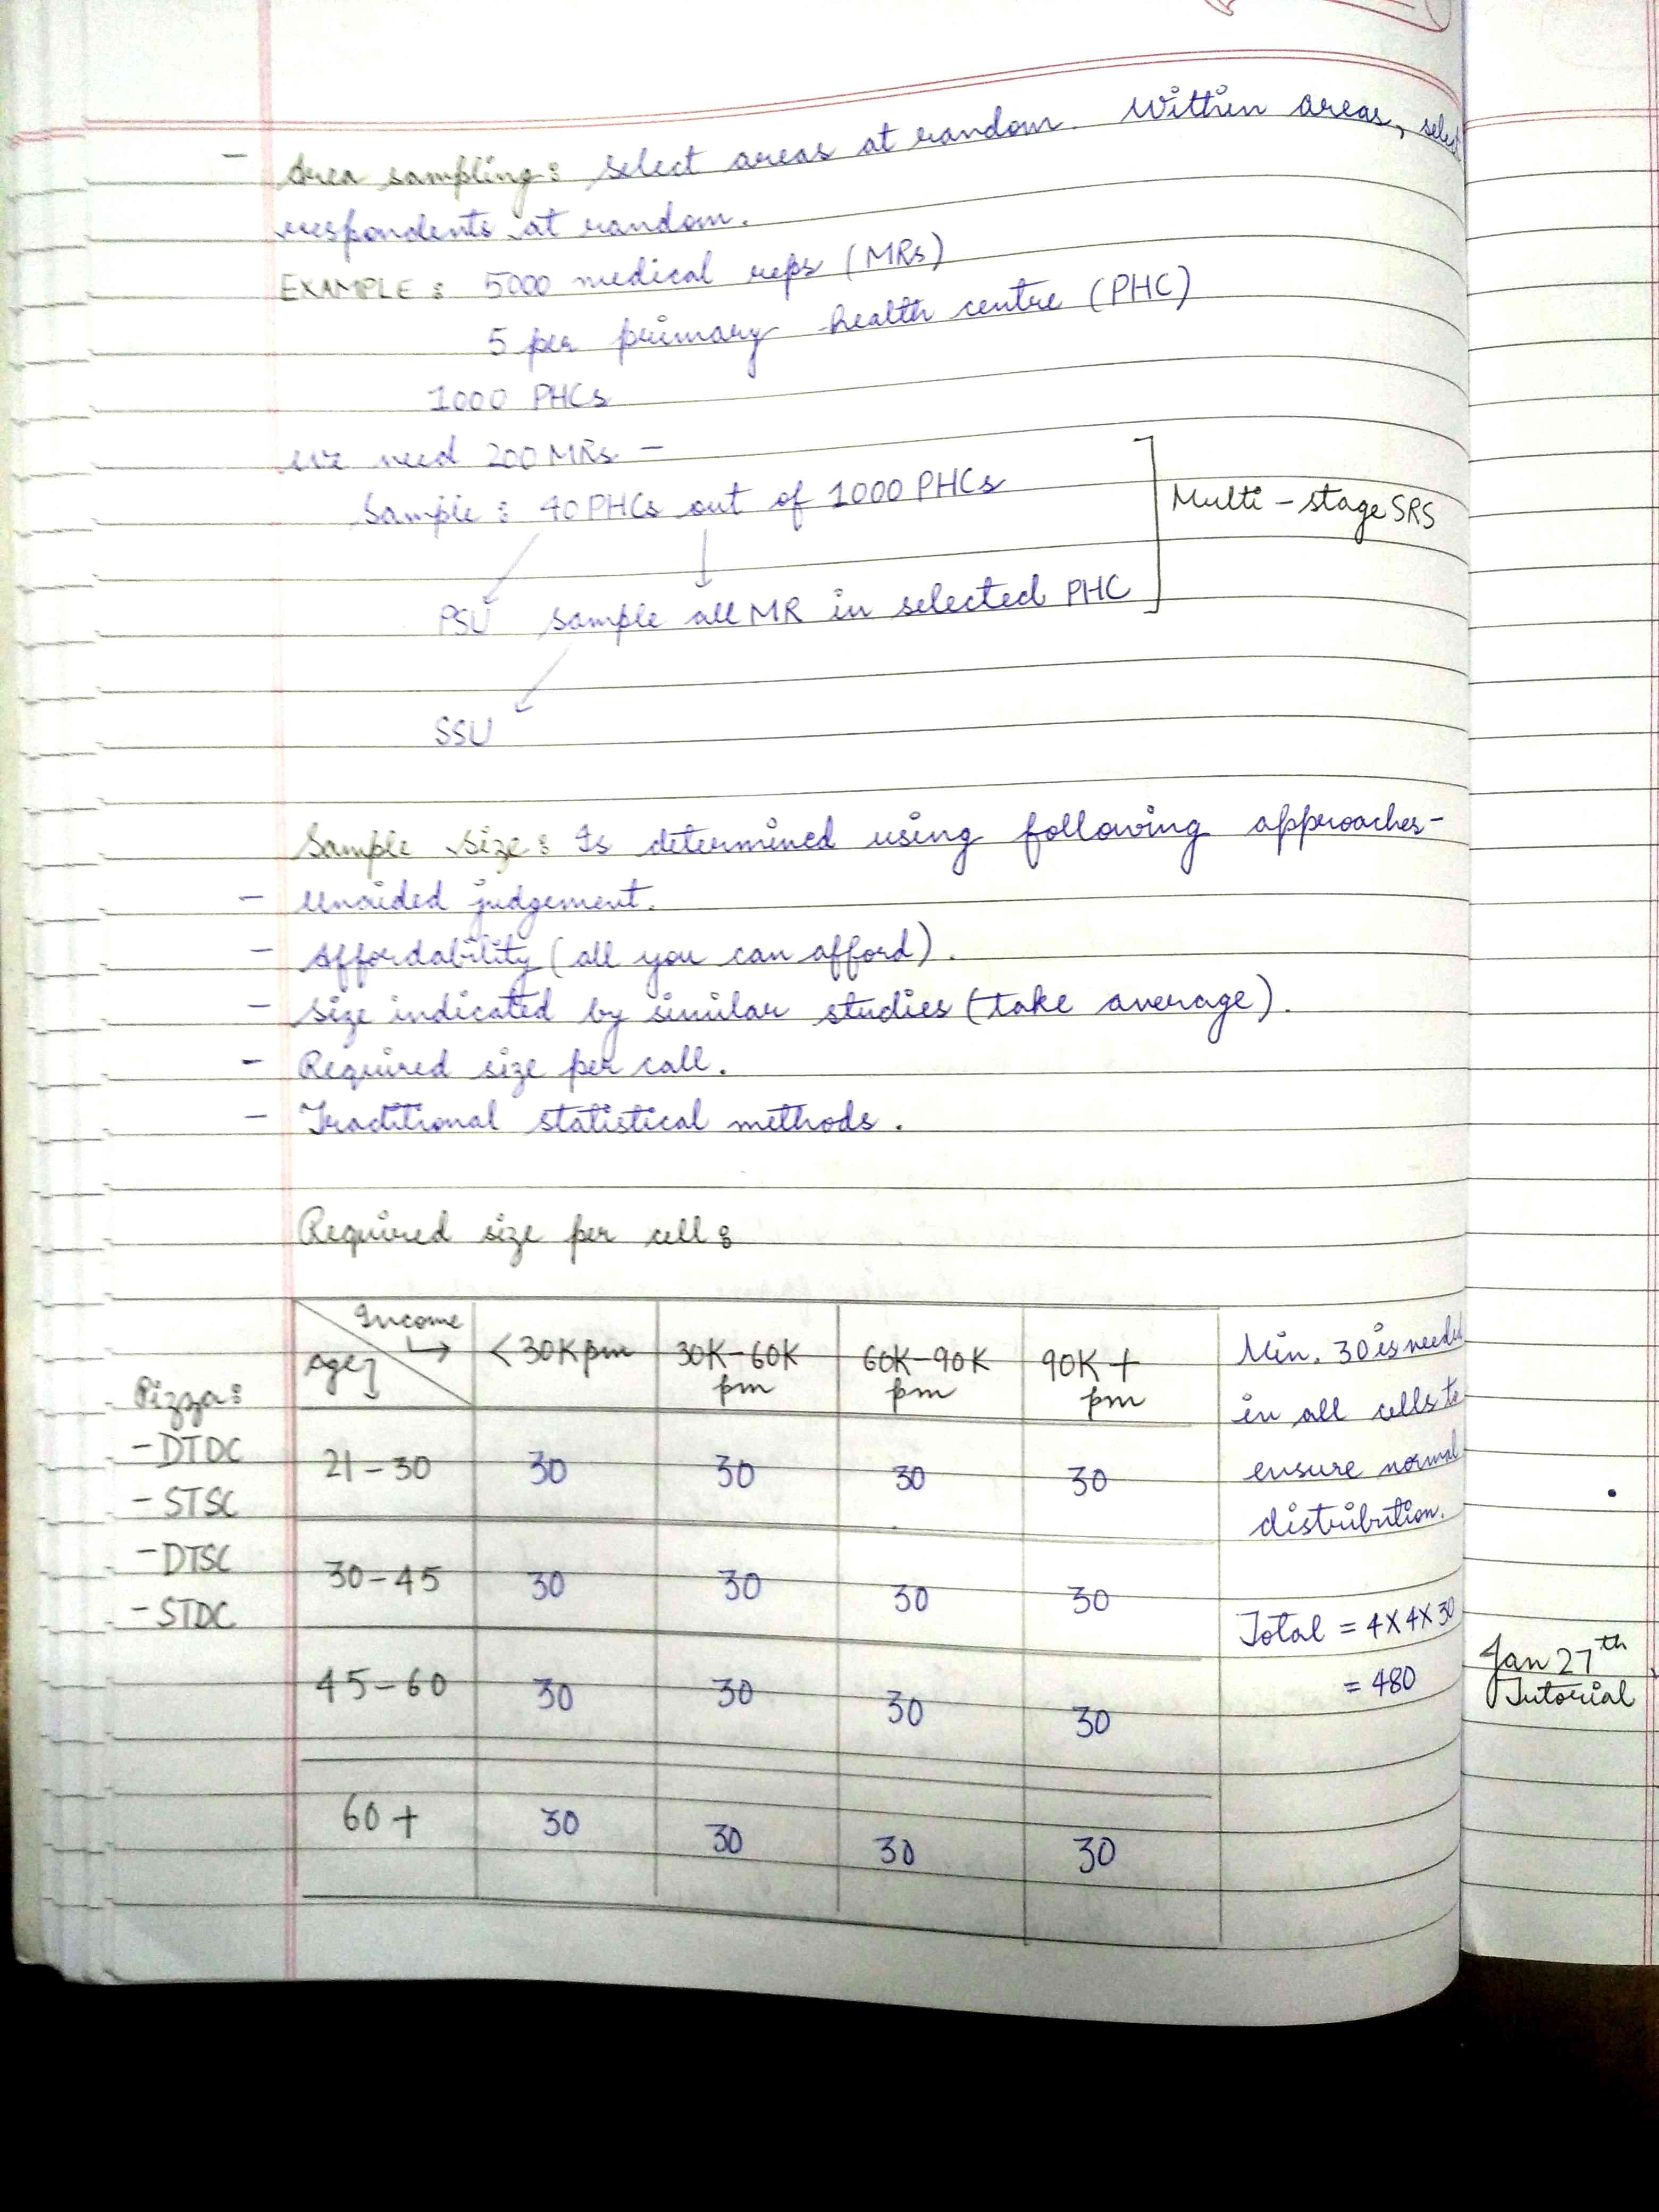 - Area sampling: Select areas at random. Within areas, select
respondents at random.
EXAMPLE: 5000 medical reps (MRs)
5 per primary health centre (PHC)
1000 PHCs
We need 200 MRs -
Sample: 40 PHCs out of 1000 PHCs
Multi-stage SRS
PSU Sample all MR in selected PHC
SSU
Sample size: Is determined using following approaches-
- Unaided judgement.
- Affordability (all you can afford).
- Size indicated by similar studies (take average).
- Required size per call.
- Traditional statistical methods.
Required size per cell:
Income
Age
<30K pm 30K-60K pm 60K-90K pm 90K+ pm
21-30 30 30 30 30
30-45 30 30 30 30
45-60 30 30 30 30
60+ 30 30 30 30
Pizza:
-DTDC
-STSC
-DTSC
-STDC
Min. 30 is needed
in all cells to
ensure normal
distribution.
Total = 4X4X30
= 480
Jan 27th
Tutorial